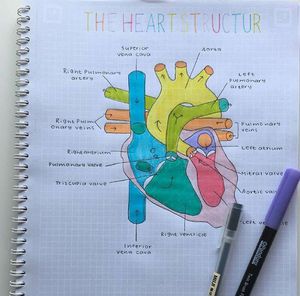 THE HEART STRUCTUR
Superior
vena cava
Aorta
Right Pulmonary
artery
Left
Pulmonary
artery
Right Pulm-
onary veins
Pulmonary
veins
Left atrium
Pulmonary valve
Mitral valve
Tricuspid valve
Aortic
Right ventricle
Inferior
vena cava